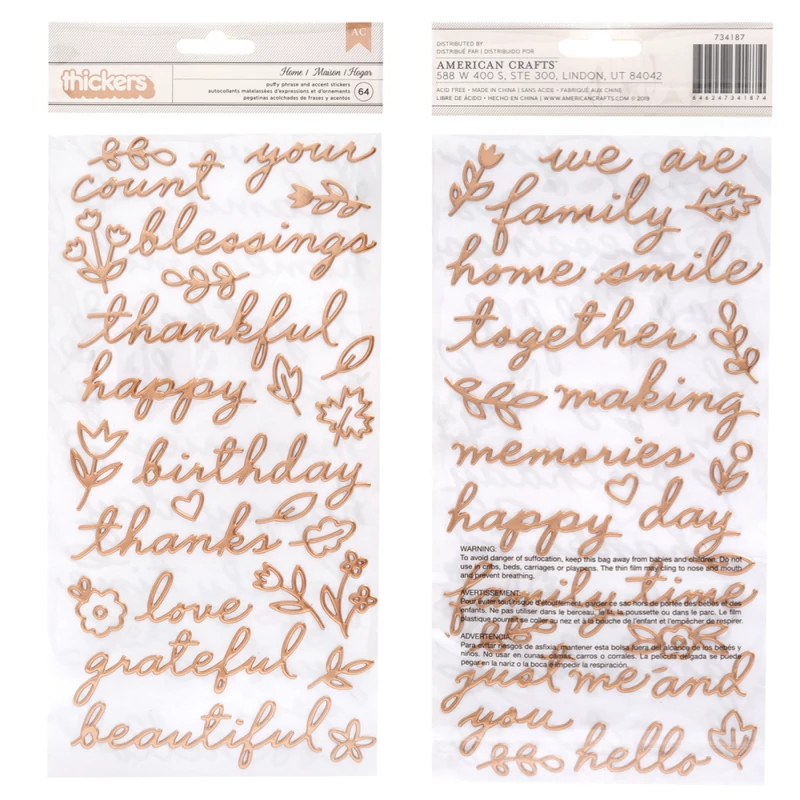 AC
thickers
Home | Maison | Hogar
puffy phrase and accent stickers
autocollants matelassées d'expressions et d'ornements
pegatinas acolchadas de frases y acentos
64
your
count
blessings
thankful
happy
birthday
thanks
love
grateful
beautiful
DISTRIBUTED BY
DISTRIBUÉ PAR | DISTRIBUIDO POR
AMERICAN CRAFTS™
588 W 400 S, STE 300, LINDON, UT 84042
ACID FREE • MADE IN CHINA | SANS ACIDE • FABRIQUÉ AUX CHINE
LIBRE DE ÁCIDO • HECHO EN CHINA | WWW.AMERICANCRAFTS.COM © 2019
734187
846247341874
we are
family
home smile
together
making
memories
happy day
WARNING:
To avoid danger of suffocation, keep this bag away from babies and children. Do not
use in cribs, beds, carriages or playpens. The thin film may cling to nose and mouth
and prevent breathing.
family time
AVERTISSEMENT:
Pour éviter tout risque d'étouffement, garder ce sac hors de portée des bébés et des
enfants. Ne pas utiliser dans le berceau, le lit, la poussette ou dans le parc. Le film
plastique pourrait se coller au nez et à la bouche de l'enfant et l'empêcher de respirer.
ADVERTENCIA:
Para evitar riesgos de asfixia, mantener esta bolsa fuera del alcance de los bebés y
niños. No usar en cunas, camas, carros o corrales. La película delgada se puede
pegar en la nariz o la boca e impedir la respiración.
just me and
you
hello